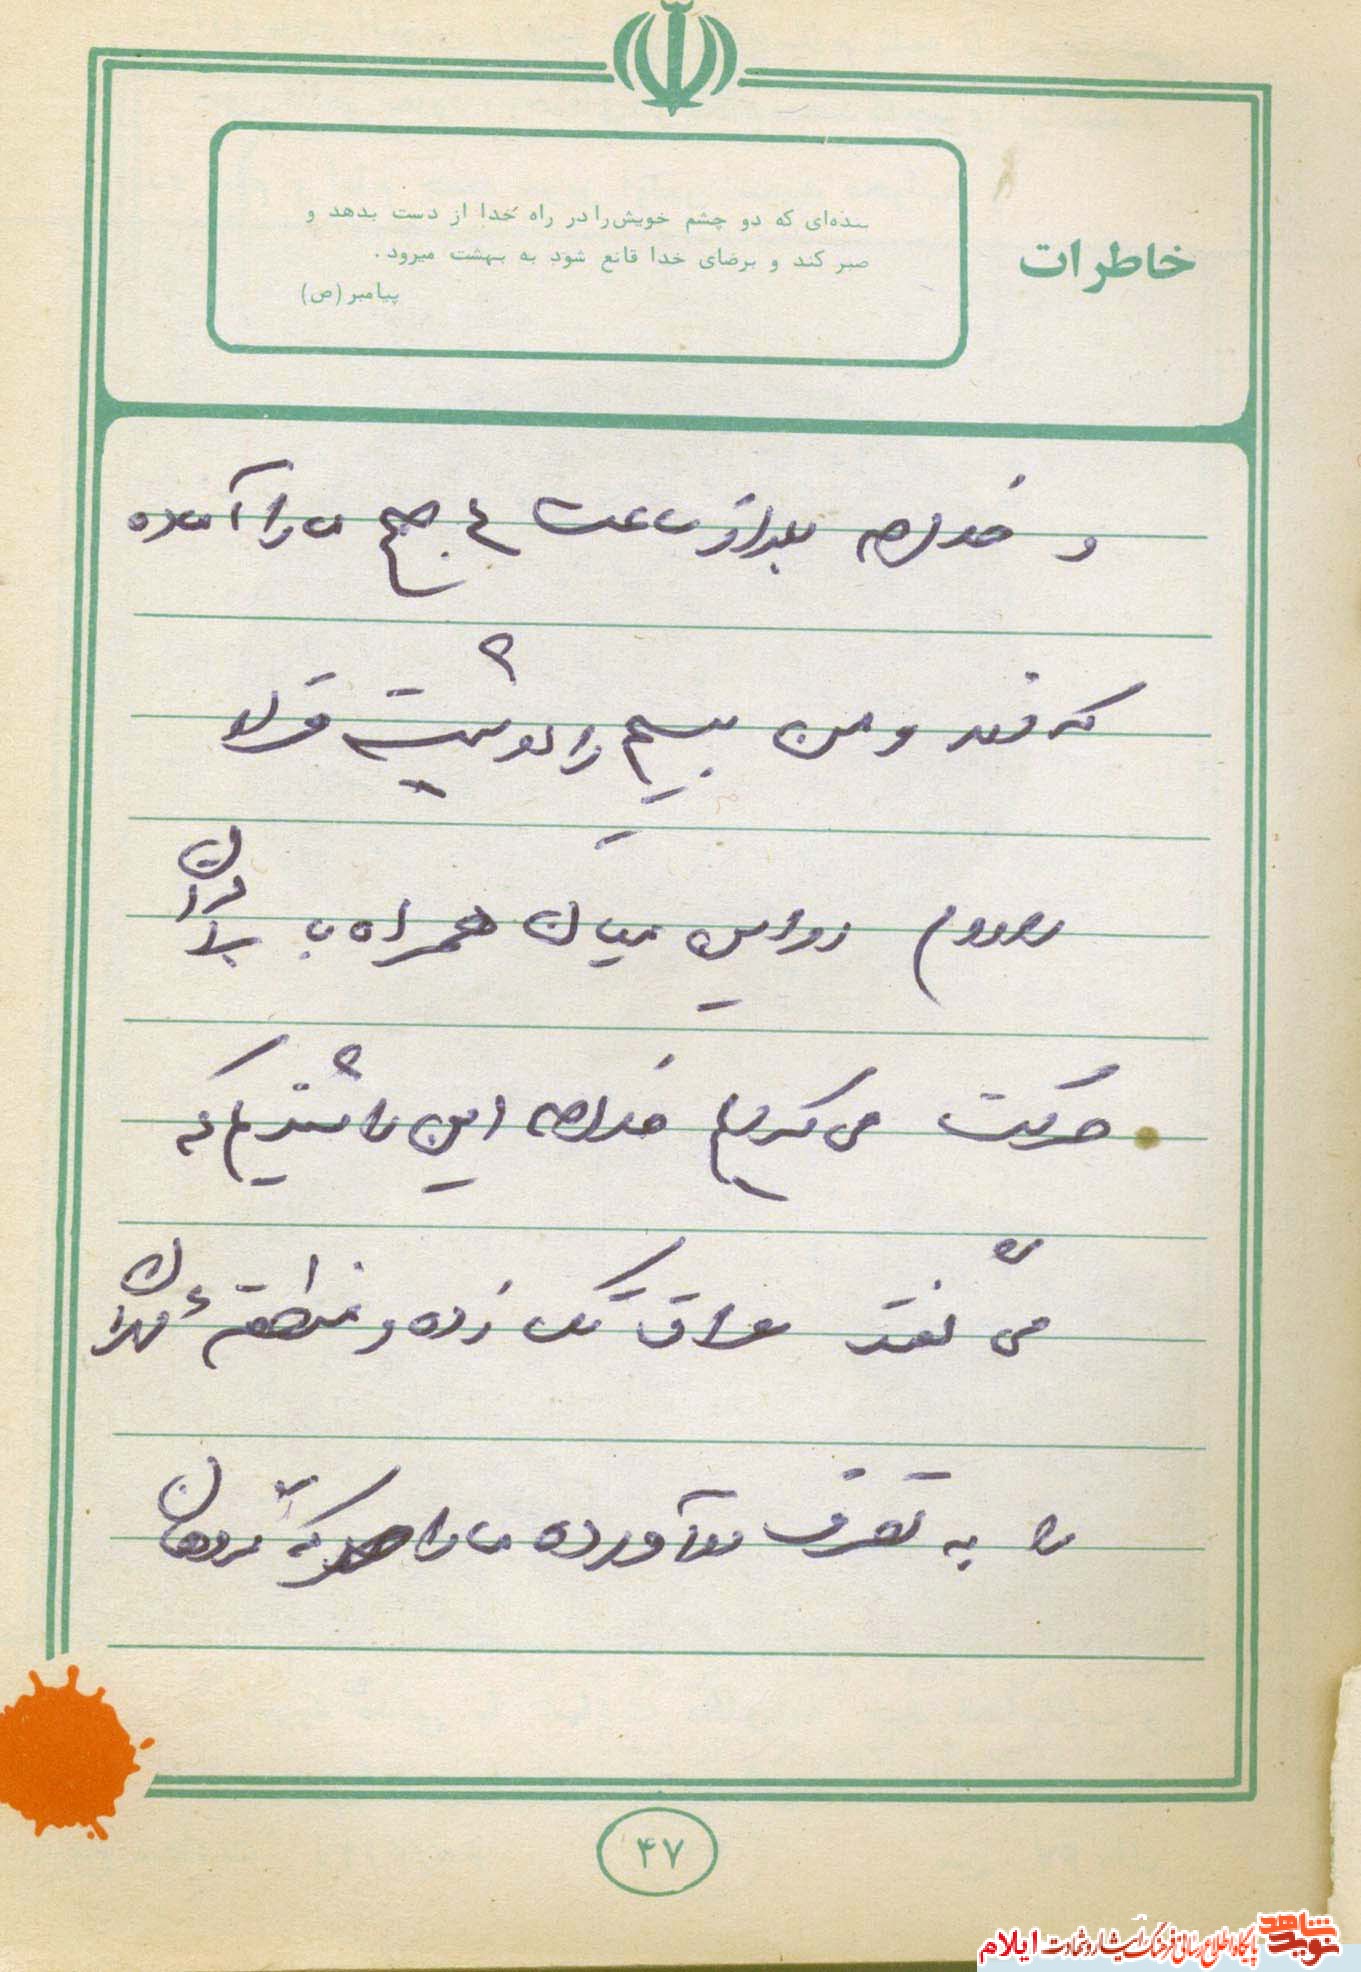 خاطرات
بنده‌ای که دو چشم خویش‌را در راه خدا از دست بدهد و
صبر کند و برضای خدا قانع شود به بهشت میرود.
پیامبر (ص)
و خلاصه بعد از ساعت ۴ صبح ما را آماده
که و من بیسیم را
در این میان همراه با برادران
حرکت می‌کردیم خلاصه این را شنیدیم که
می‌گفتند عراق تک زده و منطقه مهران
را به تصرف درآورده ما را
۴۷
نوید شاهد
پایگاه اطلاع رسانی فرهنگ ایثار و شهادت ایلام